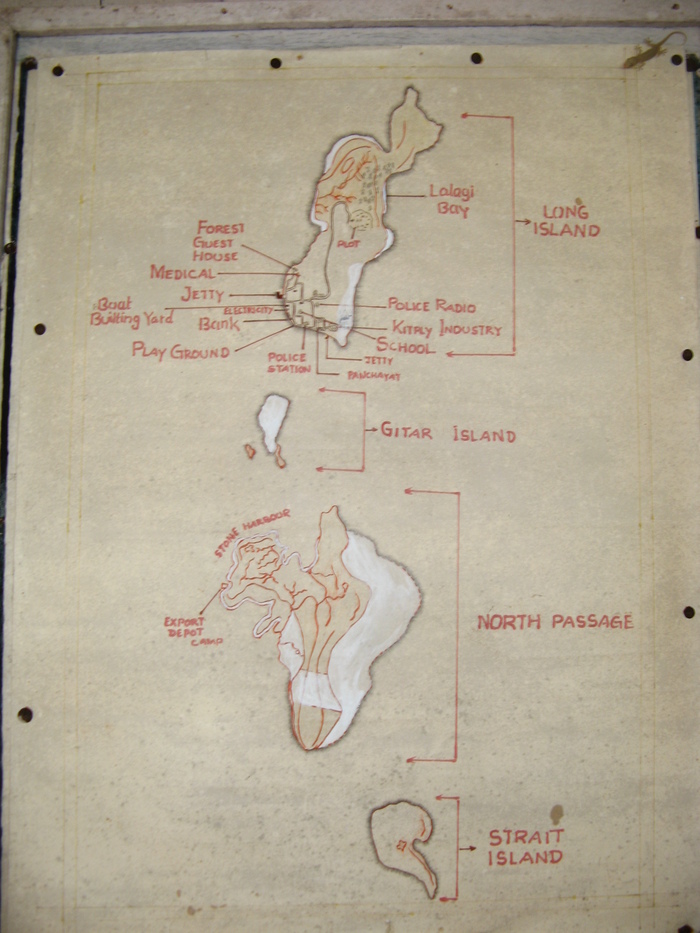 Lalagi
Bay
LONG
ISLAND
PLOT
FOREST
GUEST
HOUSE
MEDICAL
JETTY
Boat
Builting Yard
ELECTRICITY
Bank
PLAY GROUND
POLICE
STATION
POLICE RADIO
KITPLY INDUSTRY
SCHOOL
JETTY
PANCHAYAT
GITAR ISLAND
STONE HARBOUR
EXPORT
DEPOT
CAMP
NORTH PASSAGE
STRAIT
ISLAND